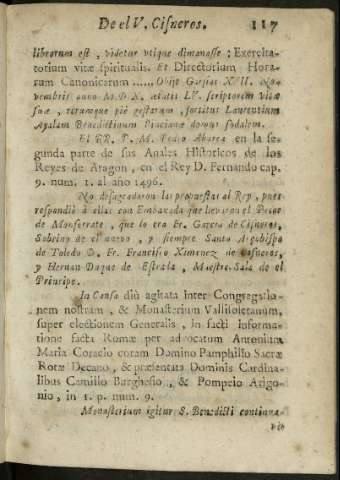 De el V. Cisneros. 117
librorum est, videtur vtique dimanasse: Exercita-
torium vitæ spiritualis. Et Directorium Hora-
rum Canonicarum ...... Obijt Garsias XVII. No-
vembris anno M.D.X. ætatis LV. scriptorem vitæ
suæ, rerumque piè gestarum, sortitus Laurentium
Ayalam Benedictinum Pincianæ domus sodalem.
El RR. P. M. Pedro Abarca en la se-
gunda parte de sus Anales Historicos de los
Reyes de Aragon, en el Rey D. Fernando cap.
9. num. 1. al año 1496.
No desagradaron las propuestas al Rey, pues
respondiò à ellas con Embaxada que llevaron el Prior
de Monserrate, que lo era Fr. Garcia de Cisneros,
Sobrino de el nuevo, y siempre Santo Arçobispo
de Toledo D. Fr. Francisco Ximenez de Cisneros,
y Hernan Duque de Estrada, Maestre-Sala de el
Principe.
In Causa diù agitata inter Congregatio-
nem nostram, & Monasterium Vallisoletanum,
super electionem Generalis, in facti informa-
tione facta Romæ per advocatum Antonium
Maria Coracio coram Domino Pamphilio Sacræ
Rotæ Decano, & præsentata Dominis Cardina-
libus Camillo Burghesio, & Pompeio Arigo-
nio, in 1. p. num. 9.
Monasterium igitur S. Benedicti continua-
vit